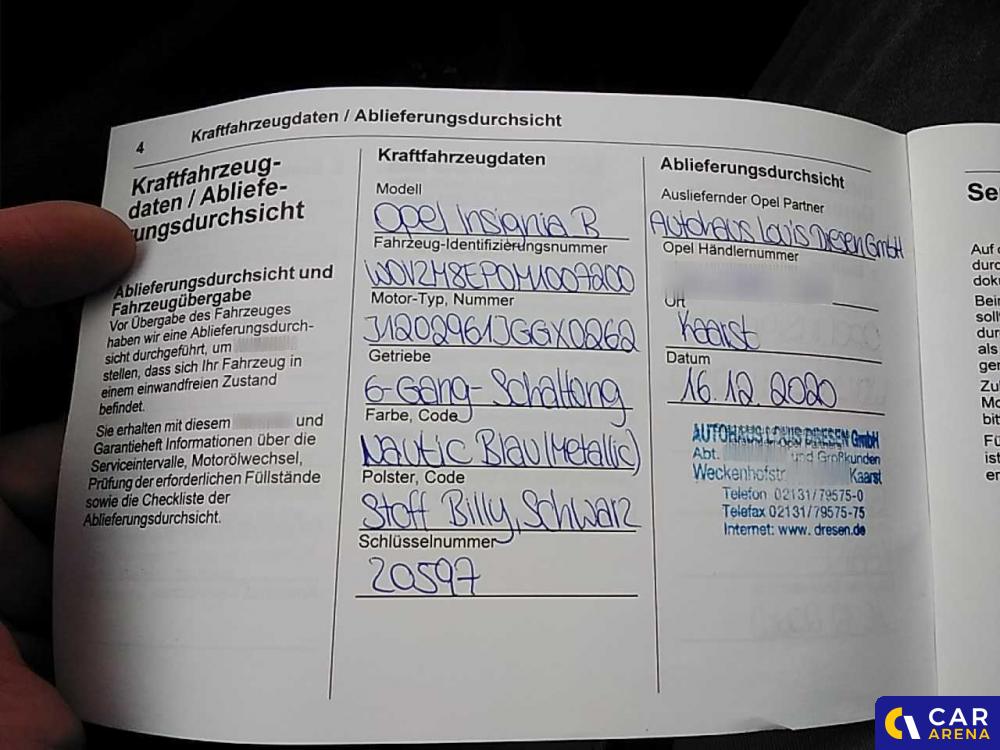 4
Kraftfahrzeugdaten / Ablieferungsdurchsicht
Kraftfahrzeug-
daten / Abliefe-
rungsdurchsicht
Ablieferungsdurchsicht und
Fahrzeugübergabe
Vor Übergabe des Fahrzeuges
haben wir eine Ablieferungsdurch-
sicht durchgeführt, um
stellen, dass sich Ihr Fahrzeug in
einem einwandfreien Zustand
befindet.
Sie erhalten mit diesem und
Garantieheft Informationen über die
Serviceintervalle, Motorölwechsel,
Prüfung der erforderlichen Füllstände
sowie die Checkliste der
Ablieferungsdurchsicht.
Kraftfahrzeugdaten
Modell
Opel Insignia B
Fahrzeug-Identifizierungsnummer
W0VZM8EP0M1007200
Motor-Typ, Nummer
J1202961JGGX0262
Getriebe
6-Gang-Schaltung
Farbe, Code
Nautic Blau (Metallic)
Polster, Code
Stoff Billy, Schwarz
Schlüsselnummer
20597
Ablieferungsdurchsicht
Ausliefernder Opel Partner
Autohaus Louis Dresen GmbH
Opel Händlernummer
Ort
Kaarst
Datum
16.12.2020
AUTOHAUS LOUIS DRESEN GmbH
Abt. und Großkunden
Weckenhofstr. Kaarst
Telefon 02131/79575-0
Telefax 02131/79575-75
Internet: www.dresen.de
Se
Auf
durc
doku
Beim
soll
dur
als
ger
Zu
Mo
bit
Fü
ist
er
CAR
ARENA